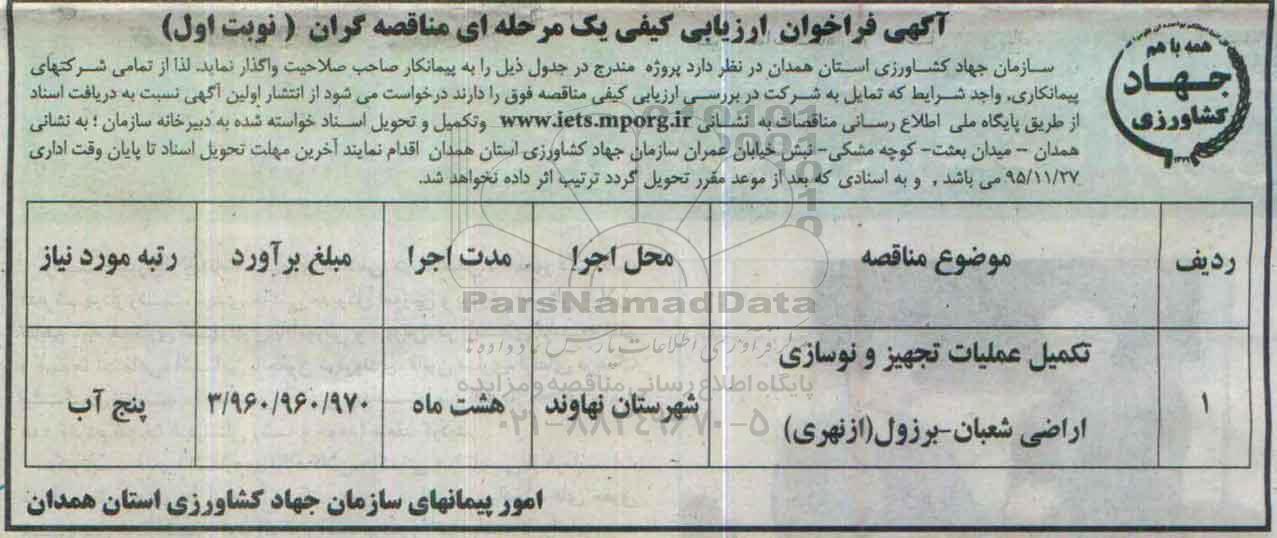 آگهی فراخوان ارزیابی کیفی یک مرحله ای مناقصه گران ( نوبت اول)
همه با هم
جهاد
کشاورزی
سازمان جهاد کشاورزی استان همدان در نظر دارد پروژه مندرج در جدول ذیل را به پیمانکار صاحب صلاحیت واگذار نماید. لذا از تمامی شرکتهای
پیمانکاری, واجد شرایط که تمایل به شرکت در بررسی ارزیابی کیفی مناقصه فوق را دارند درخواست می شود از انتشار اولین آگهی نسبت به دریافت اسناد
از طریق پایگاه ملی اطلاع رسانی مناقصات به نشانی www.iets.mporg.ir وتکمیل و تحویل اسناد خواسته شده به دبیرخانه سازمان ؛ به نشانی
همدان – میدان بعثت- کوچه مشکی- نبش خیابان عمران سازمان جهاد کشاورزی استان همدان اقدام نمایند آخرین مهلت تحویل اسناد تا پایان وقت اداری
۹۵/۱۱/۲۷ می باشد , و به اسنادی که بعد از موعد مقرر تحویل گردد ترتیب اثر داده نخواهد شد.
ردیف موضوع مناقصه محل اجرا مدت اجرا مبلغ برآورد رتبه مورد نیاز
ParsNamadData
تکمیل عملیات تجهیز و نوسازی
پایگاه اطلاع رسانی مناقصه و مزایده
۱ اراضی شعبان-برزول(ازنهری) شهرستان نهاوند هشت ماه ۳/۹۶۰/۹۶۰/۹۷۰ پنج آب
۰۲۱-۸۸۳۴۹۶۷۰-۵
امور پیمانهای سازمان جهاد کشاورزی استان همدان